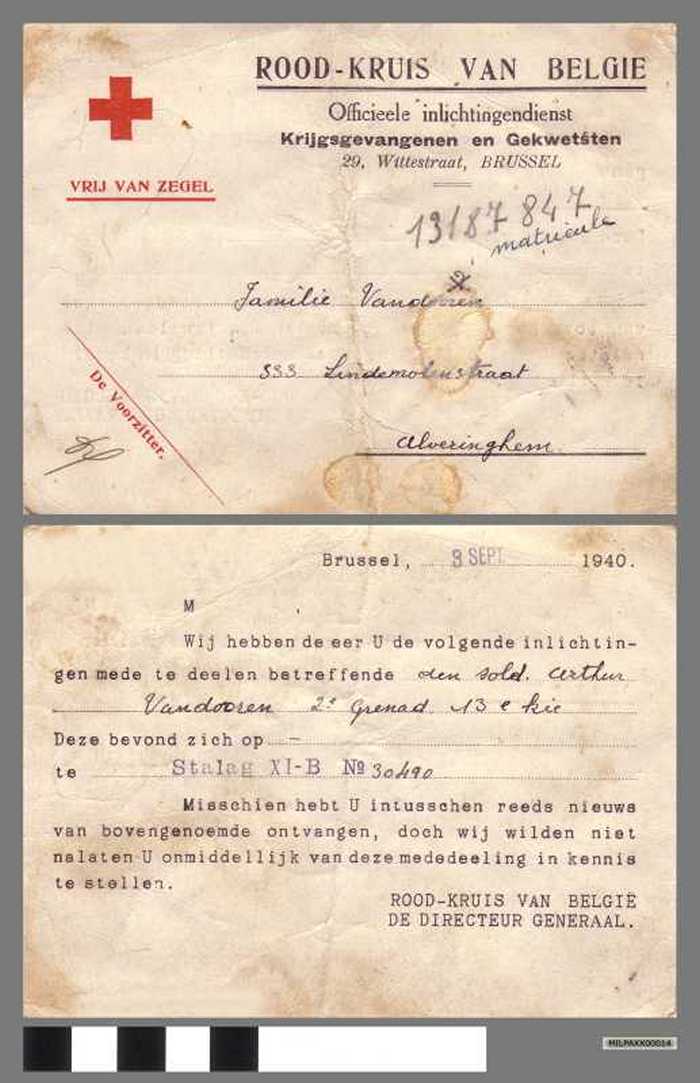 ROOD-KRUIS VAN BELGIE
Officieele inlichtingendienst
Krijgsgevangenen en Gekwetsten
29, Wittestraat, BRUSSEL
VRIJ VAN ZEGEL
13187 847
matricule
Familie Vandooren
533 Lindemolenstraat
De Voorzitter.
Alveringhem.
Brussel, 3 SEPT. 1940.
M
Wij hebben de eer U de volgende inlichtin-
gen mede te deelen betreffende den sold. Arthur
Vandooren 2e Grenad. 13e Kie
Deze bevond zich op -
te Stalag XI-B № 30490
Misschien hebt U intusschen reeds nieuws
van bovengenoemde ontvangen, doch wij wilden niet
nalaten U onmiddellijk van deze mededeeling in kennis
te stellen.
ROOD-KRUIS VAN BELGIË
DE DIRECTEUR GENERAAL.
MILPAXX00014